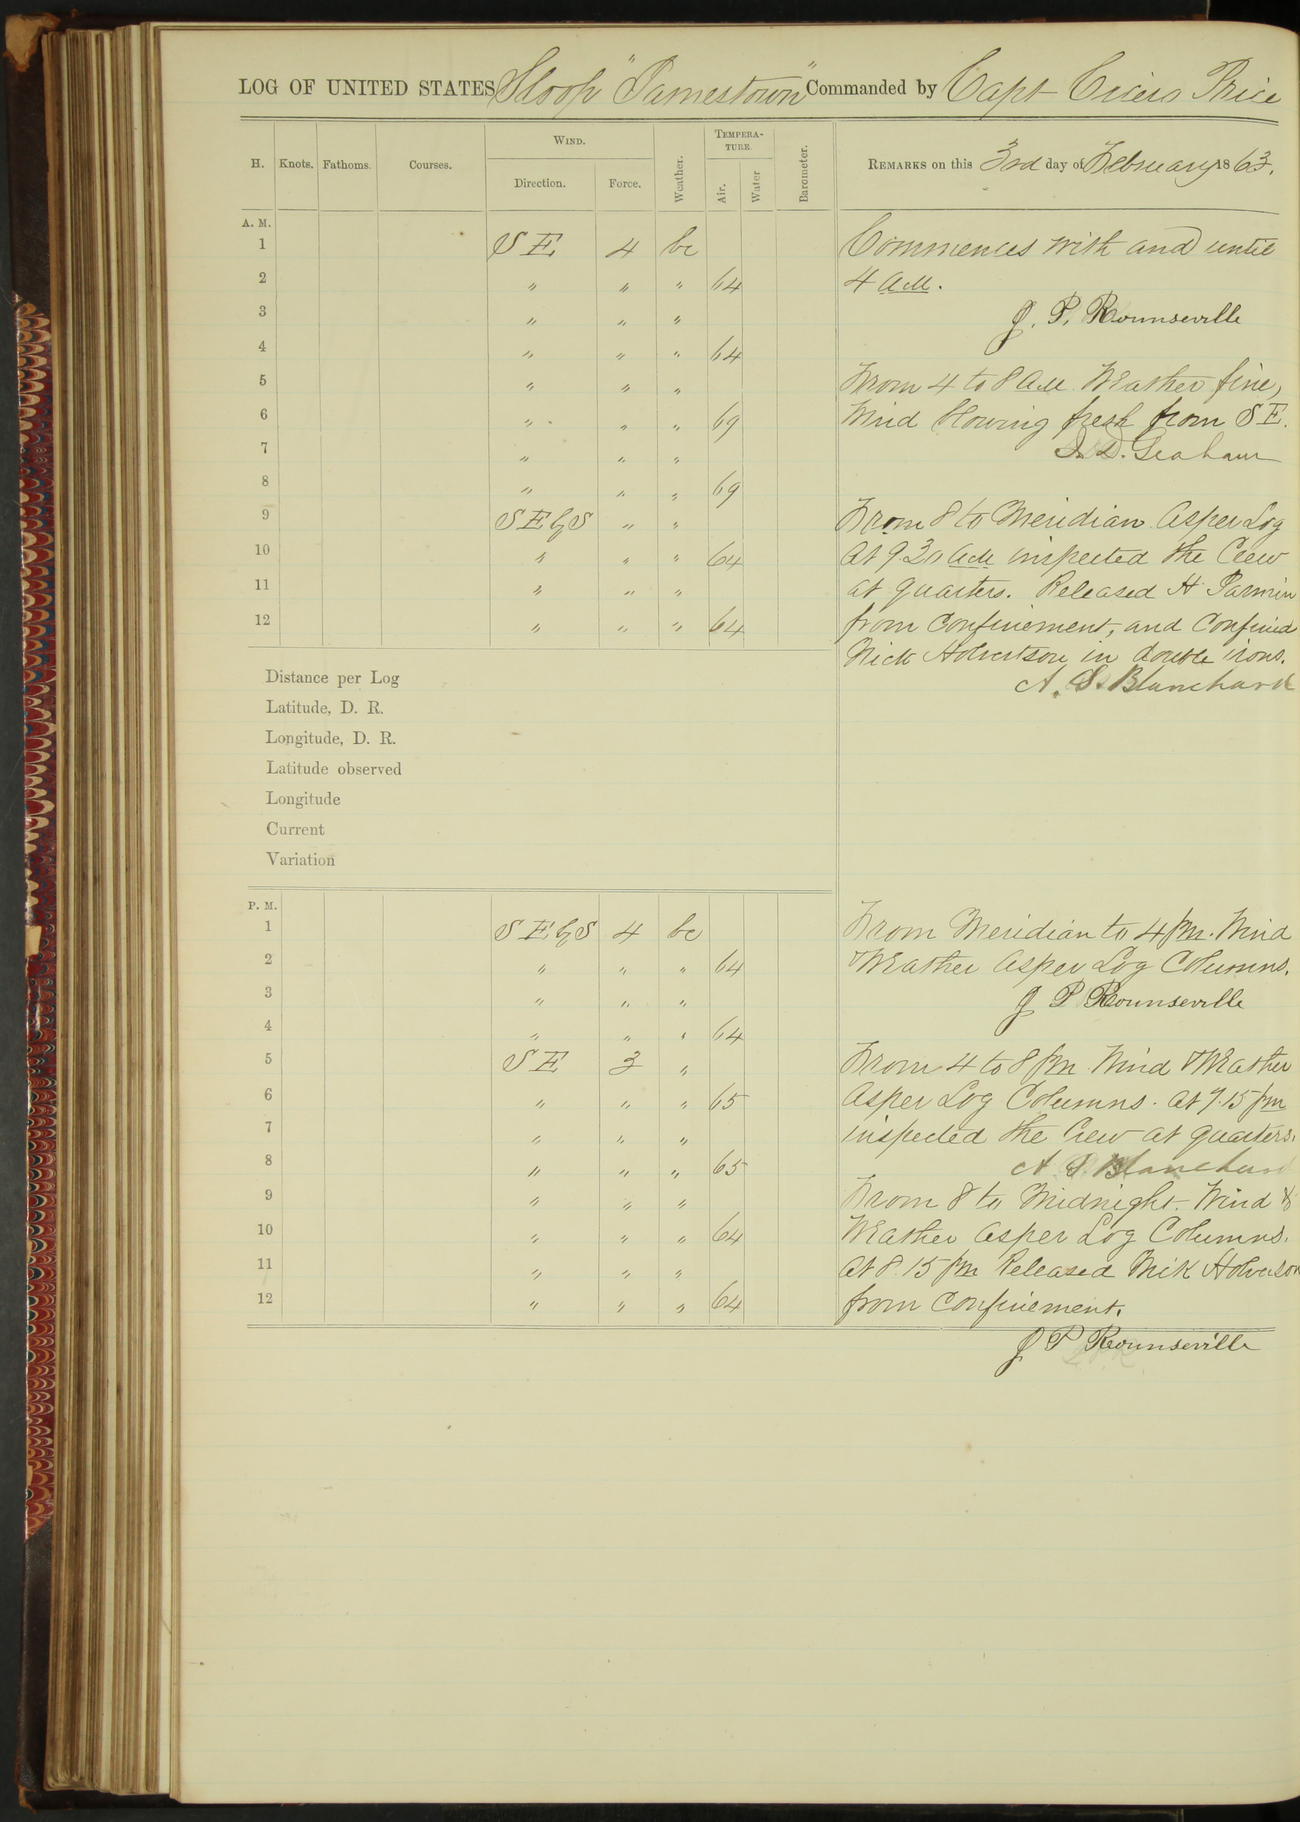 LOG OF UNITED STATES Sloop "Jamestown" Commanded by Capt Cicero Price
H. Knots. Fathoms. Courses. WIND. Direction. Force. Weather. TEMPERATURE. Air. Water Barometer. REMARKS on this 3rd day of February 1863.
A. M.
1 SE 4 bc
2 " " " 64
3 " " "
4 " " " 64
5 " " "
6 " " " 69
7 " " "
8 " " " 69
9 SE by S " "
10 " " " 64
11 " " "
12 " " " 64
Commences with and until
4 A.M.
J. P. Rounseville
From 4 to 8 A.M. Weather fine,
Wind blowing fresh from SE.
J. D. Graham
From 8 to Meridian As per Log
At 9.30 A.M. inspected the Crew
at quarters. Released H
from Confinement, and Confined
Nick Holvertson in double irons.
A. S. Blanchard
Distance per Log
Latitude, D. R.
Longitude, D. R.
Latitude observed
Longitude
Current
Variation
P. M.
1 SE by S 4 bc
2 " " " 64
3 " " "
4 " " " 64
5 SE 3 "
6 " " " 65
7 " " "
8 " " " 65
9 " " "
10 " " " 64
11 " " "
12 " " " 64
From Meridian to 4 pm. Wind
& Weather As per Log Columns.
J P Rounseville
From 4 to 8 pm Wind & Weather
As per Log Columns. At 7.15 pm
inspected the Crew at quarters.
A. S. Blanchard
From 8 to Midnight. Wind &
Weather As per Log Columns.
At 8.15 pm Released Nick Holverson
from Confinement.
J P Rounseville